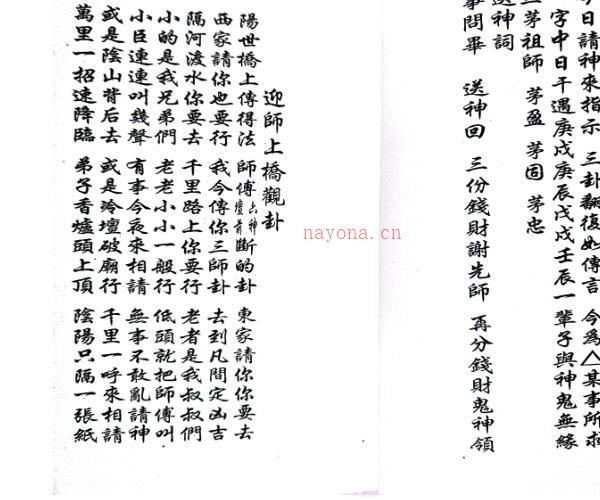 日請神來指示 三卦翻復如傳言 今為△某事所求
字中日干遇庚戌庚辰戊戌壬辰一輩子與神鬼無緣
茅祖師 茅盈 茅固 茅忠
送神詞
事問畢 送神回 三份錢財謝先師 再分錢財鬼神領
迎師上橋觀卦
陽世橋上傳得法 師傅六神壇前斷的卦 東家請你你要去
西家請你也要行 我今傳你三師卦 去到凡間定凶吉
隔河渡水你要去 千里路上你要行 老者是我叔叔們
小的是我兄弟們 老老小小一般行 低頭就把師傅叫
小臣連連叫幾聲 有事今夜來相請 無事不敢亂請神
或是陰山背后去 或是冷壇破廟行 千里一呼來相請
萬里一招速降臨 弟子香爐頭上頂 陰陽只隔一張紙
nayona.cn